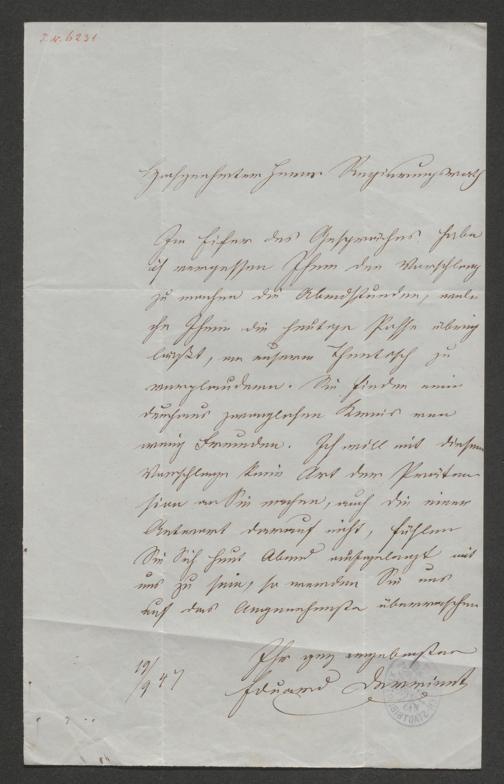 J.N. 6231
Hochgeehrter Herr Regierungsrath
Im Eifer des Gesprächs habe
ich vergessen Ihnen den Vorschlag
zu machen die Abendstunden, wel-
che Ihnen die heutige Posse übrig
läßt, an unserm Theetisch zu
verplaudern. Sie finden einen
durchaus zwanglosen Kreis von
wenig Freunden. Ich will mit diesem
Vorschlage keine Art der Präten-
sion an Sie machen, auch die einer
Antwort darauf nicht, fühlen
Sie Sich heut Abend aufgelegt mit
uns zu sein, so werden Sie uns
auf das Angenehmste überraschen
Ihr ganz ergebenster
19/9 47
Eduard Devrient